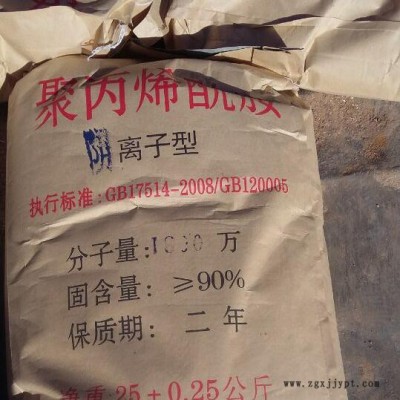 聚丙烯酰胺
阴离子型
执行标准:GB17514-2008/GB120005
分子量:1800万
固含量: ≥90%
保质期: 二年
净重25±0.25公斤
www.zgxjjypt.com